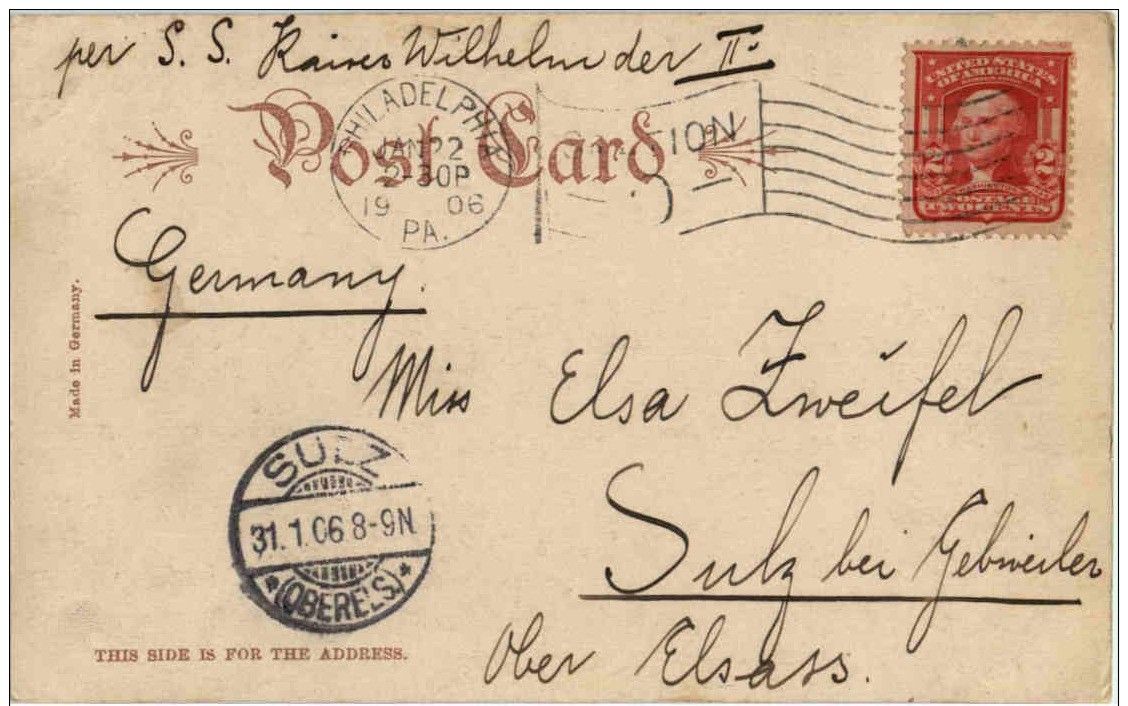 per S. S. Kaiser Wilhelm der II.
Post Card
PHILADELPHIA
JAN 22
2-30P
1906
PA.
STATION
UNITED STATES
OF AMERICA
2 2
POSTAGE
TWO CENTS
Germany.
Made in Germany.
Miss Elsa Zweifel
Sulz bei Gebweiler
Ober Elsass.
SULZ
31.1.06 8-9N
* (OBERELS) *
THIS SIDE IS FOR THE ADDRESS.